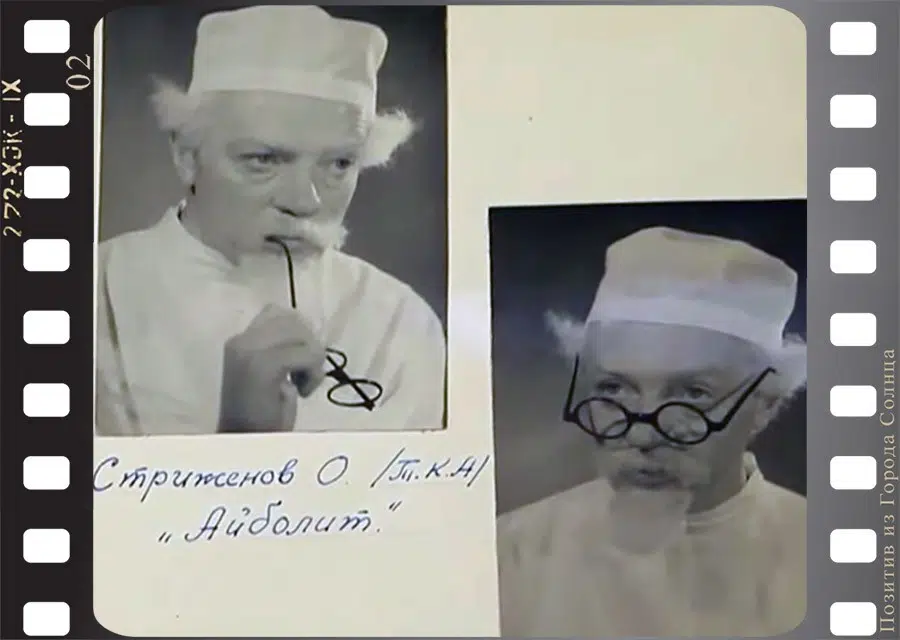 02
272-ХЭК-IX
Стриженов О. /Т.к.А/
„Айболит."
Позитив из Города Солнца